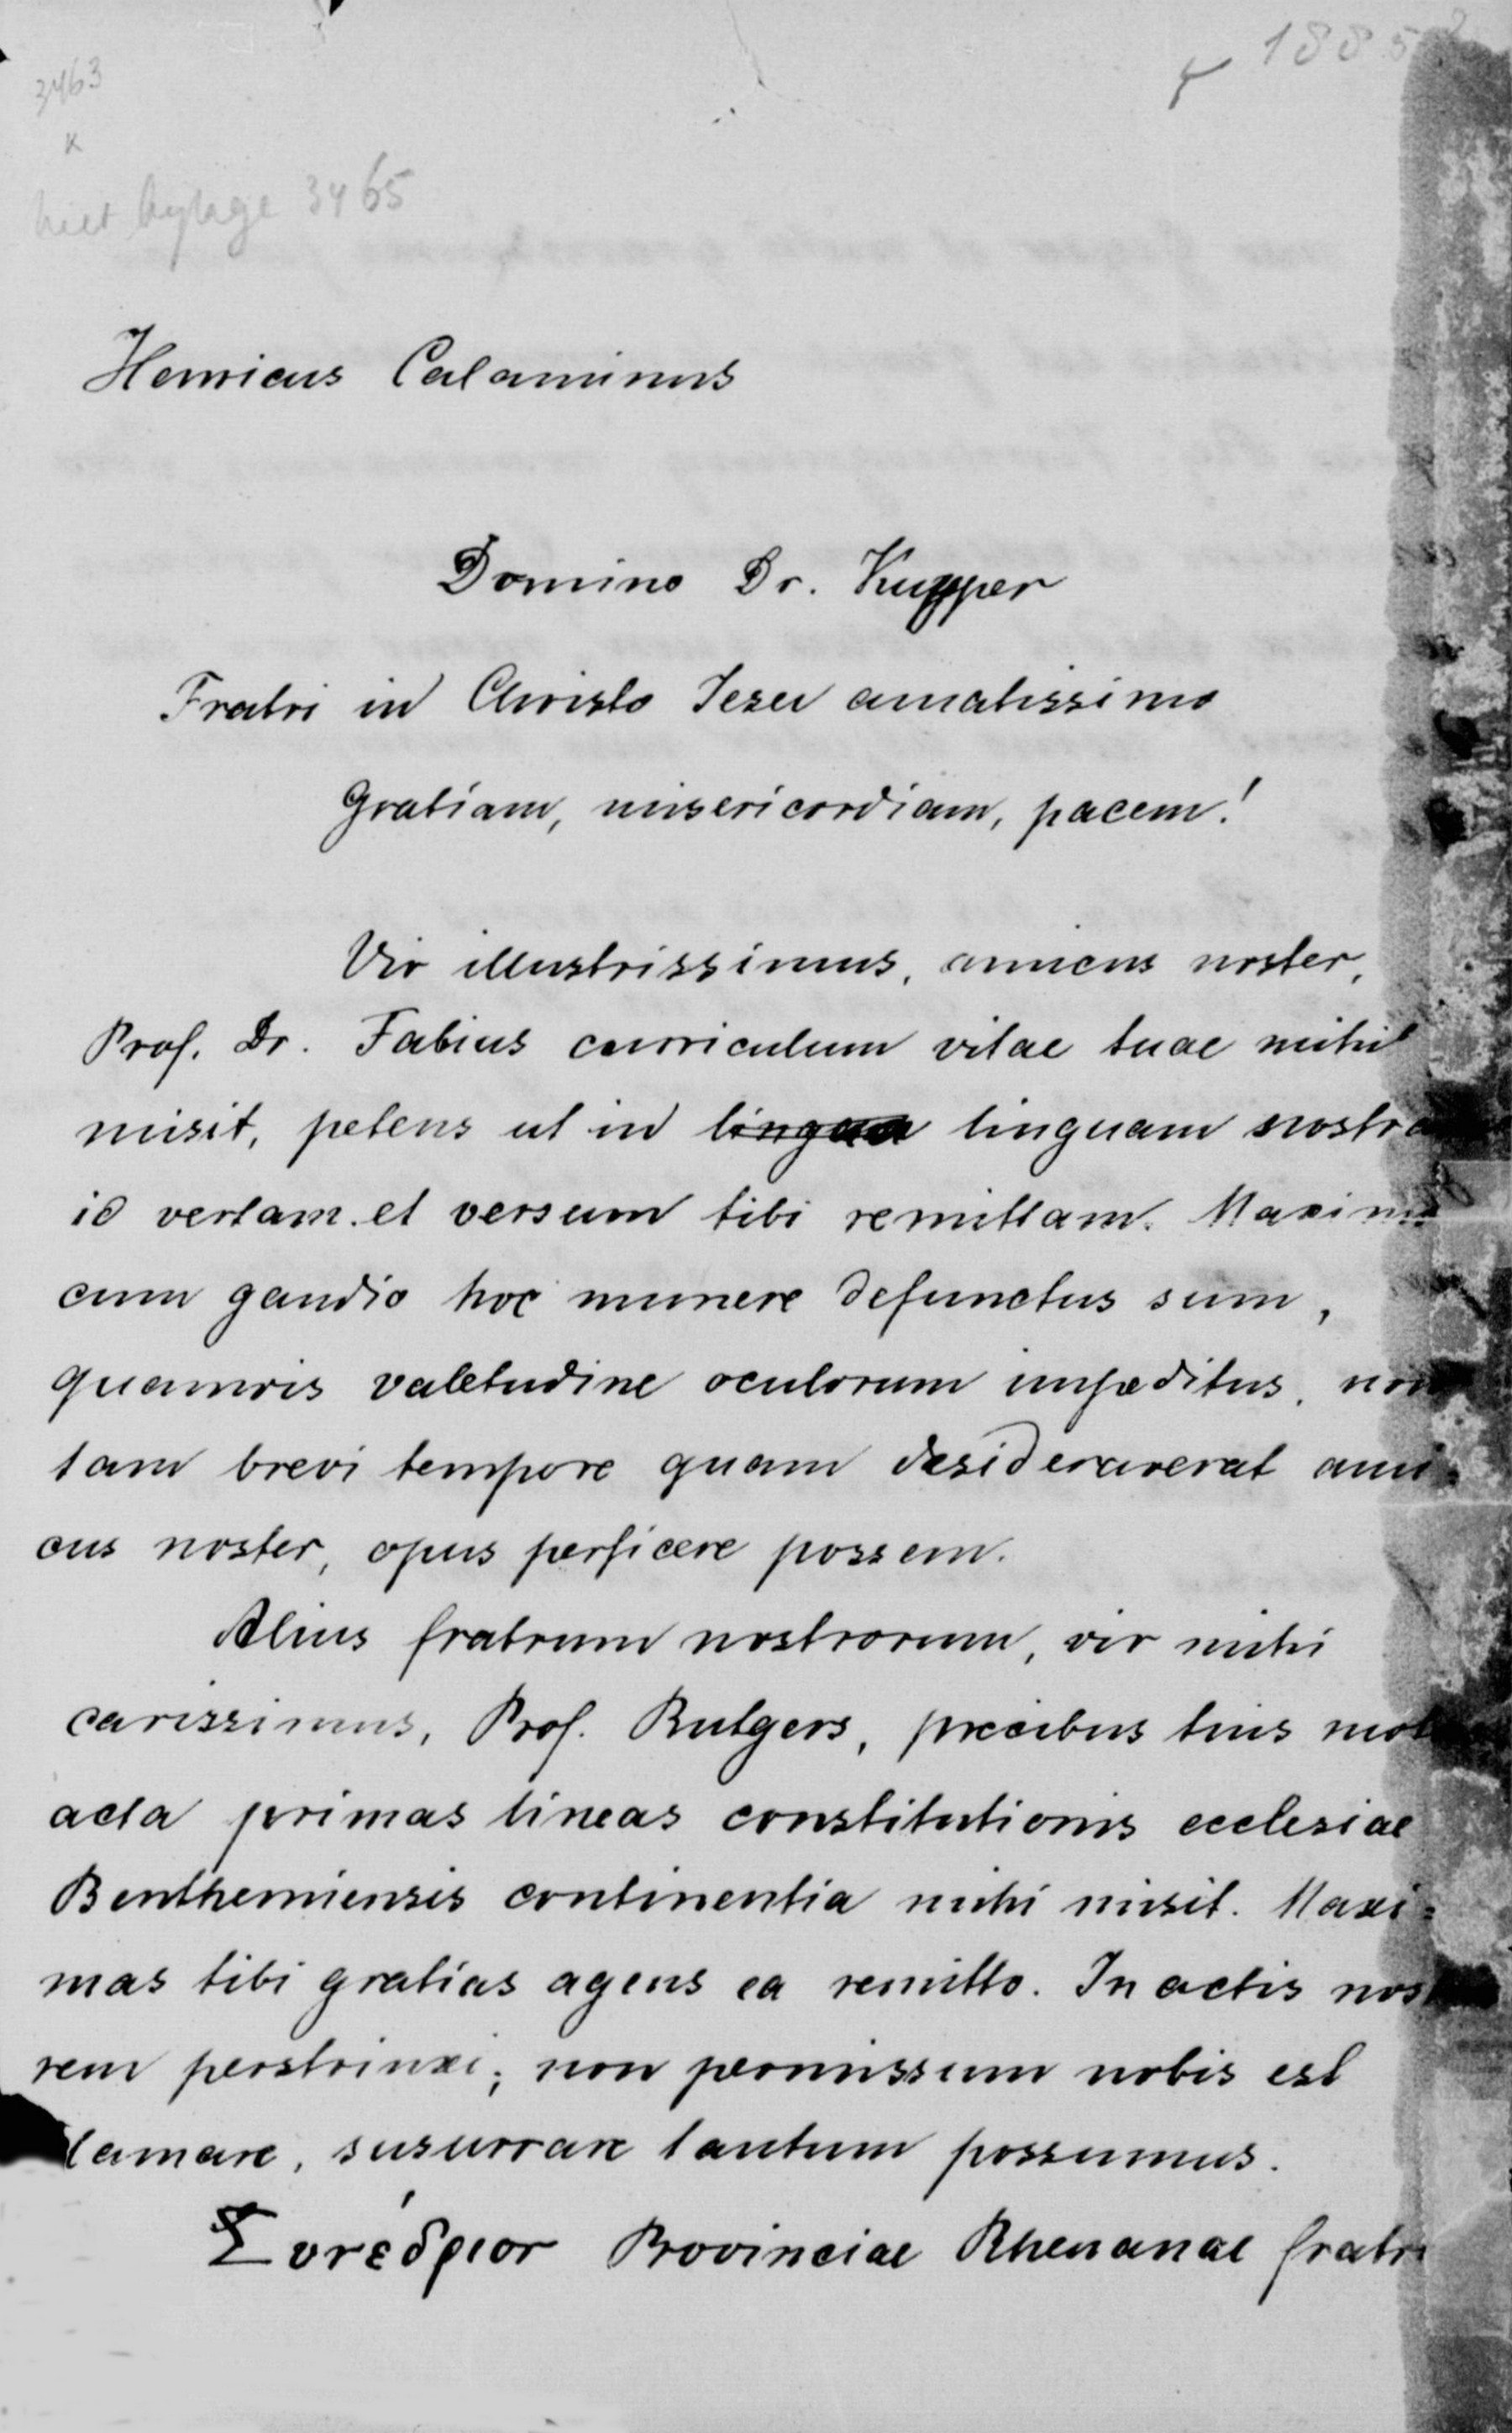 1885
3463
x
3465
Henricus Calaminus
Domino Dr. Kuyper
Fratri in Christo Iesu amatissimo
Gratiam, misericordiam, pacem!
Vir illustrissimus, amicus noster,
Prof. Dr. Fabius curriculum vitae tuae mihi
misit, petens ut in lingua linguam nostra
id vertam et versum tibi remittam. Maximo
cum gaudio hoc munere defunctus sum,
quamvis valetudine oculorum impeditus, non
tam brevi tempore quam desideraverat ami-
cus noster, opus perficere possem.
Alius fratrum nostrorum, vir mihi
carissimus, Prof. Rutgers, precibus tuis mot
acta primas lineas constitutionis ecclesiae
Benthemiensis continentia mihi misit. Maxi=
mas tibi gratias agens ea remitto. In actis nos
rem perstrinxi; non permissum nobis est
lamare, susurrare tantum possumus.
Συνέδριον Provinciae Rhenanae fratri